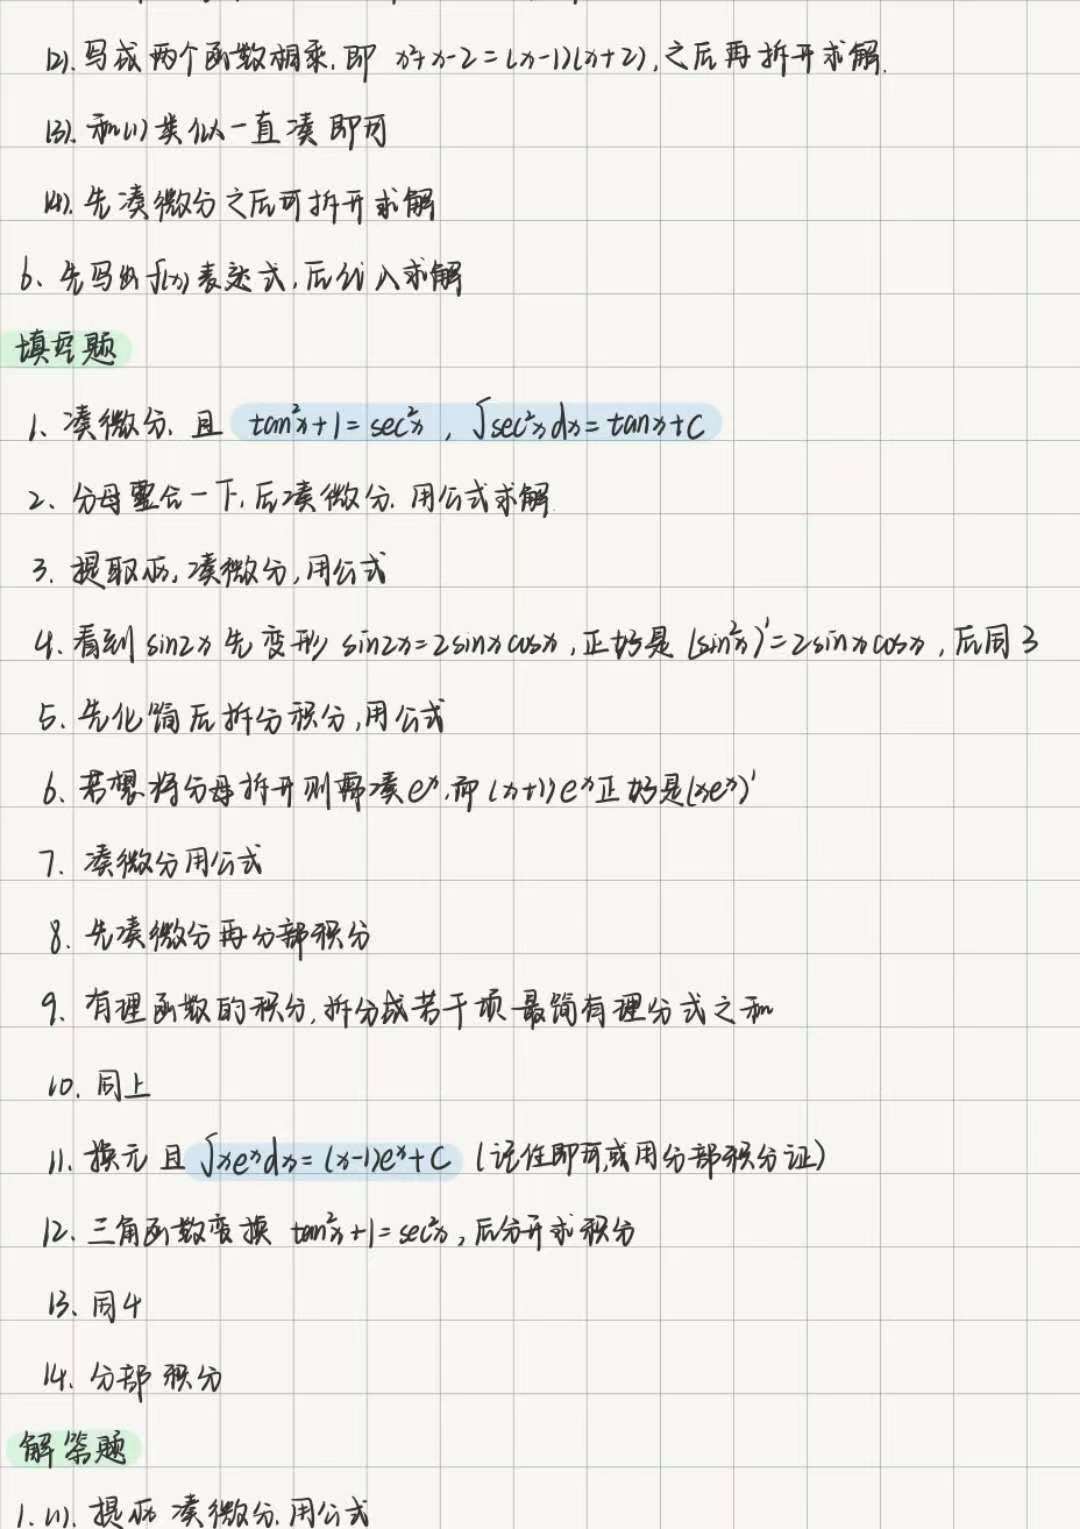 (2). 写成两个函数相乘,即 x²+x-2=(x-1)(x+2),之后再拆开求解.
(3). 和(1)类似一直凑即可
(4). 先凑微分之后可拆开求解
6、先写出f(x)表达式,后代入求解
填空题
1、凑微分,且 tan²x+1=sec²x , ∫sec²xdx=tanx+C
2、分母整合一下,后凑微分,用公式求解.
3. 提取π,凑微分,用公式
4. 看到 sin2x 先变形 sin2x=2sinxcosx,正好是 (sin²x)'=2sinxcosx,后同3
5、先化简后拆分积分,用公式
6、若想将分母拆开则需凑eˣ,而(x+1)eˣ正好是(xeˣ)'
7. 凑微分用公式
8. 先凑微分再分部积分
9、有理函数的积分,拆分成若干项最简有理分式之和
10. 同上
11. 换元且∫xeˣdx=(x-1)eˣ+C (记住即可,或用分部积分证)
12. 三角函数变换 tan²x+1=sec²x,后分开求积分
13、同4
14. 分部积分
解答题
1. (1). 提 凑微分,用公式